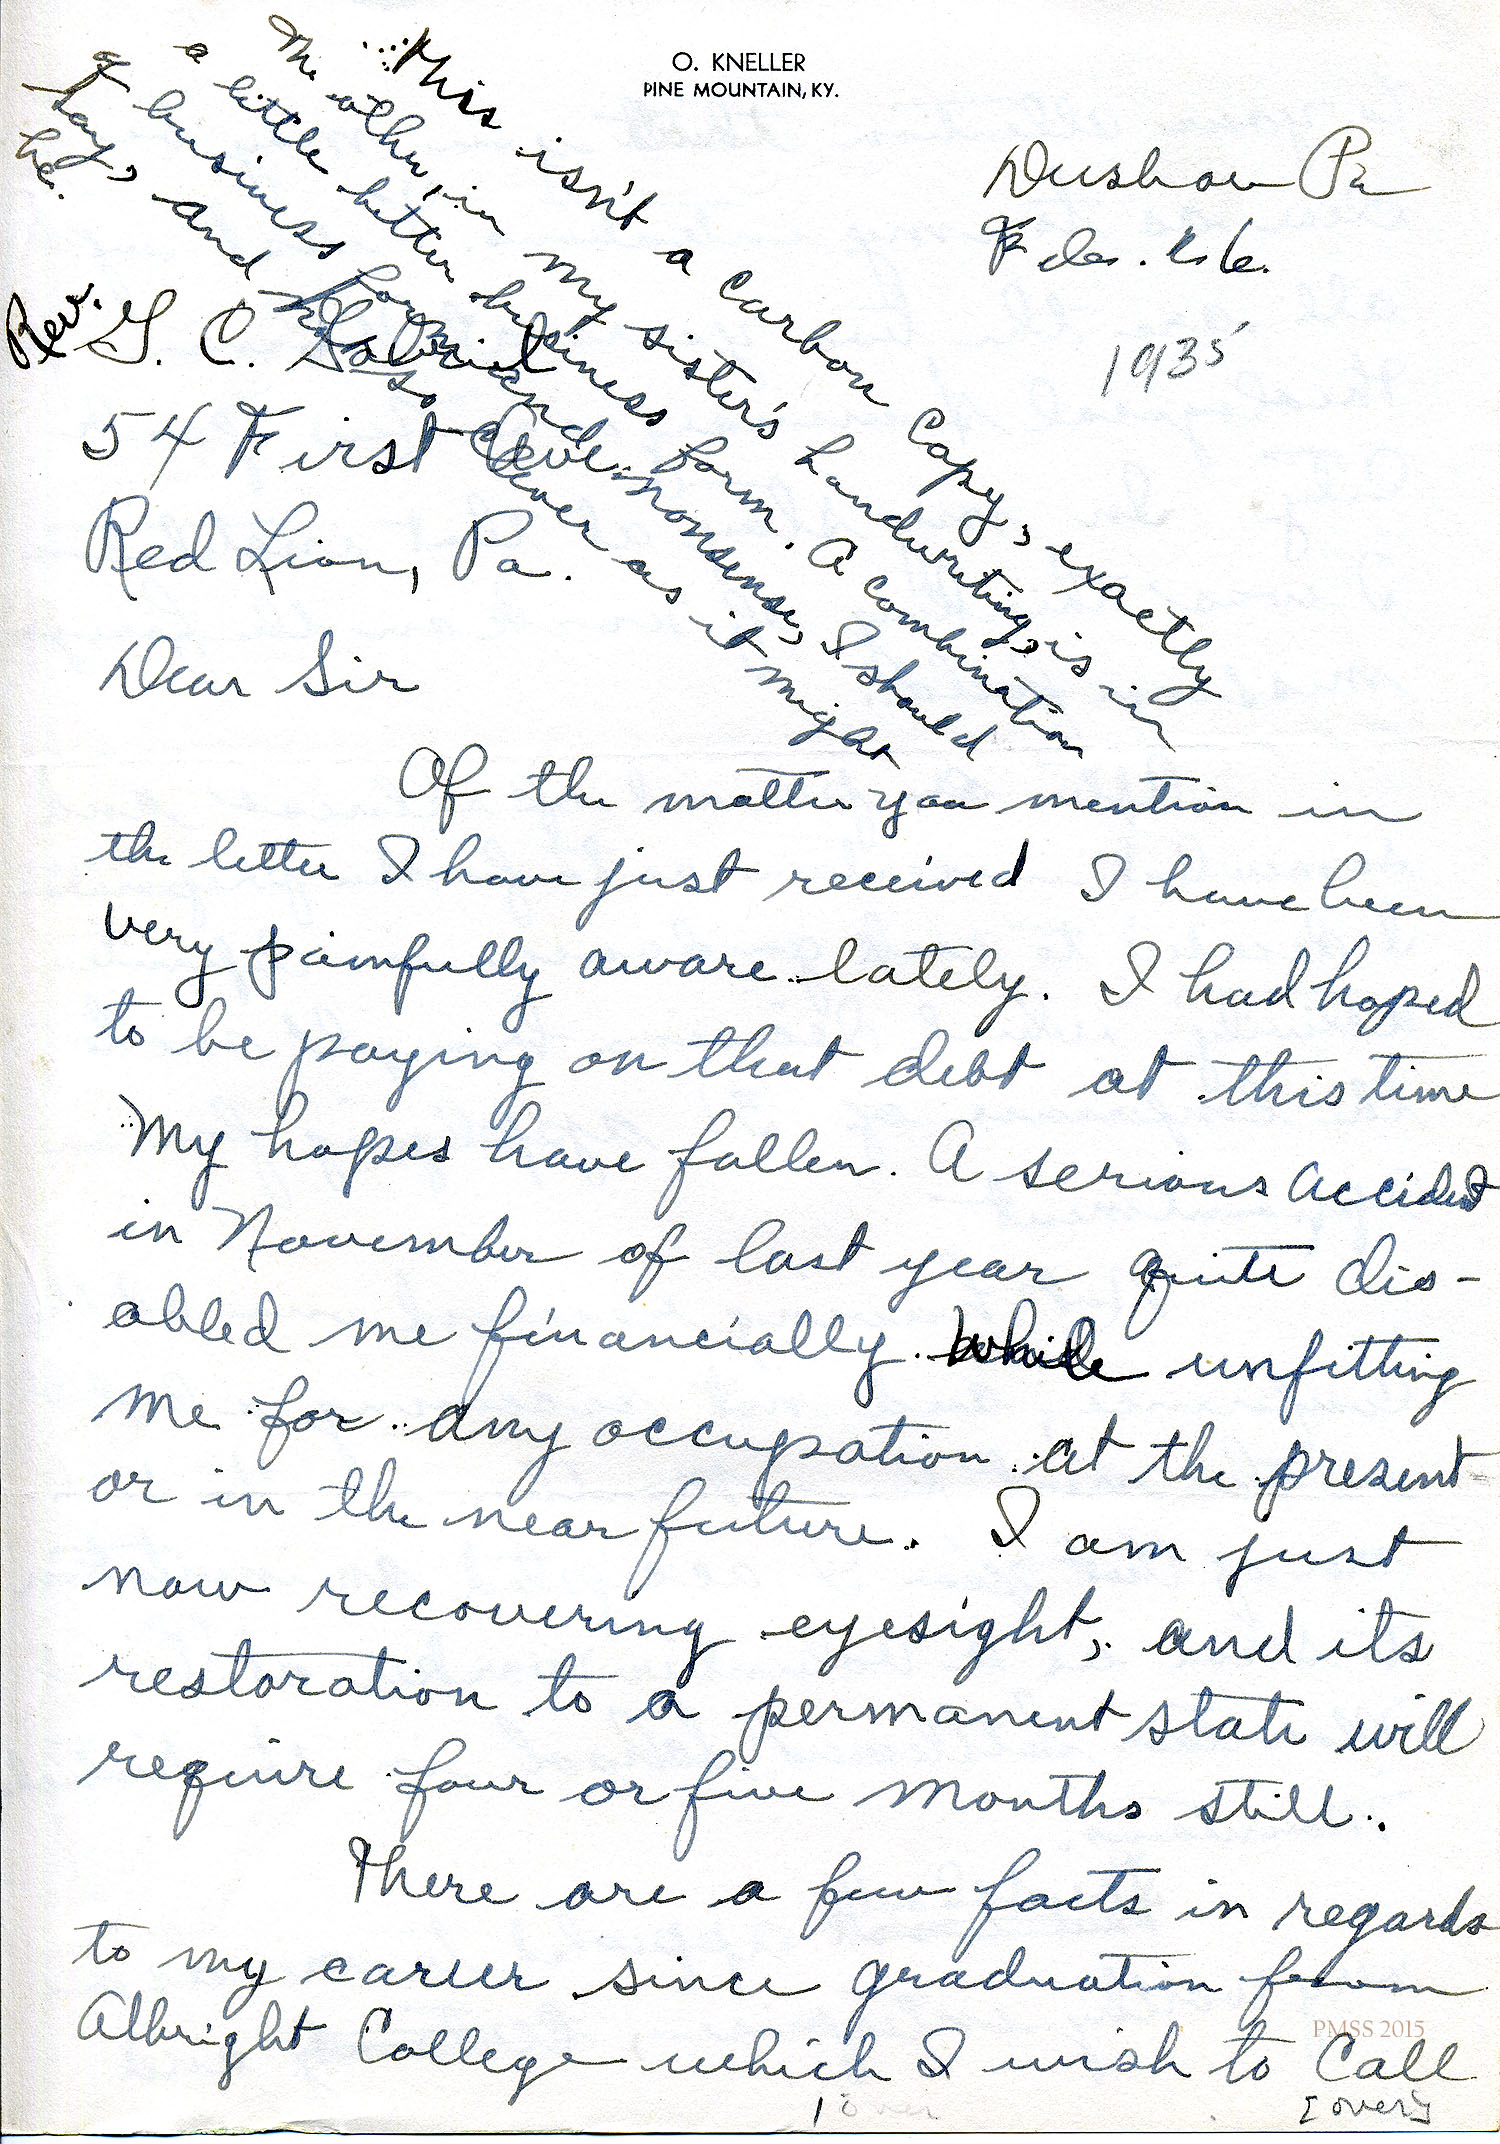 O. KNELLER
PINE MOUNTAIN, KY.
This isn't a carbon copy, exactly
The other, in my sister's handwriting, is in
a little better business form. A combination
of business form and nonsense, I should
say, and not so clever as it might
be.
Dushore Pa
Feb. 26.
1935
Rev. G. C. Gabriel
54 First Ave.
Red Lion, Pa.
Dear Sir
Of the matter you mention in
the letter I have just received I have been
very painfully aware lately. I had hoped
to be paying on that debt at this time
My hopes have fallen. A serious accident
in November of last year quite dis-
abled me financially while unfitting
me for any occupation at the present
or in the near future. I am just
now recovering eyesight, and its
restoration to a permanent state will
require four or five months still.
There are a few facts in regards
to my career since graduation from
Albright College which I wish to call
PMSS 2015
[over]